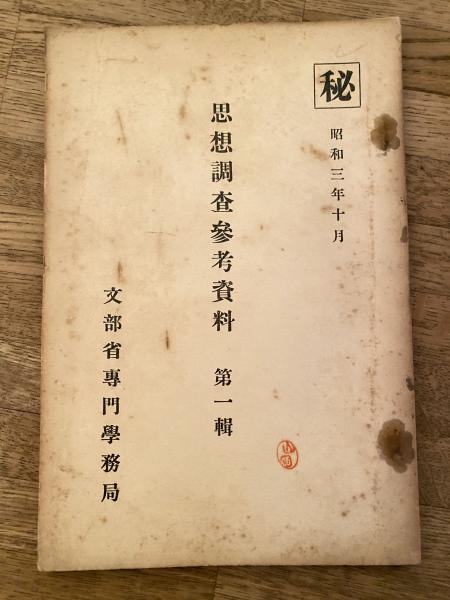 秘
昭和三年十月
思想調査參考資料 第一輯
文部省專門學務局